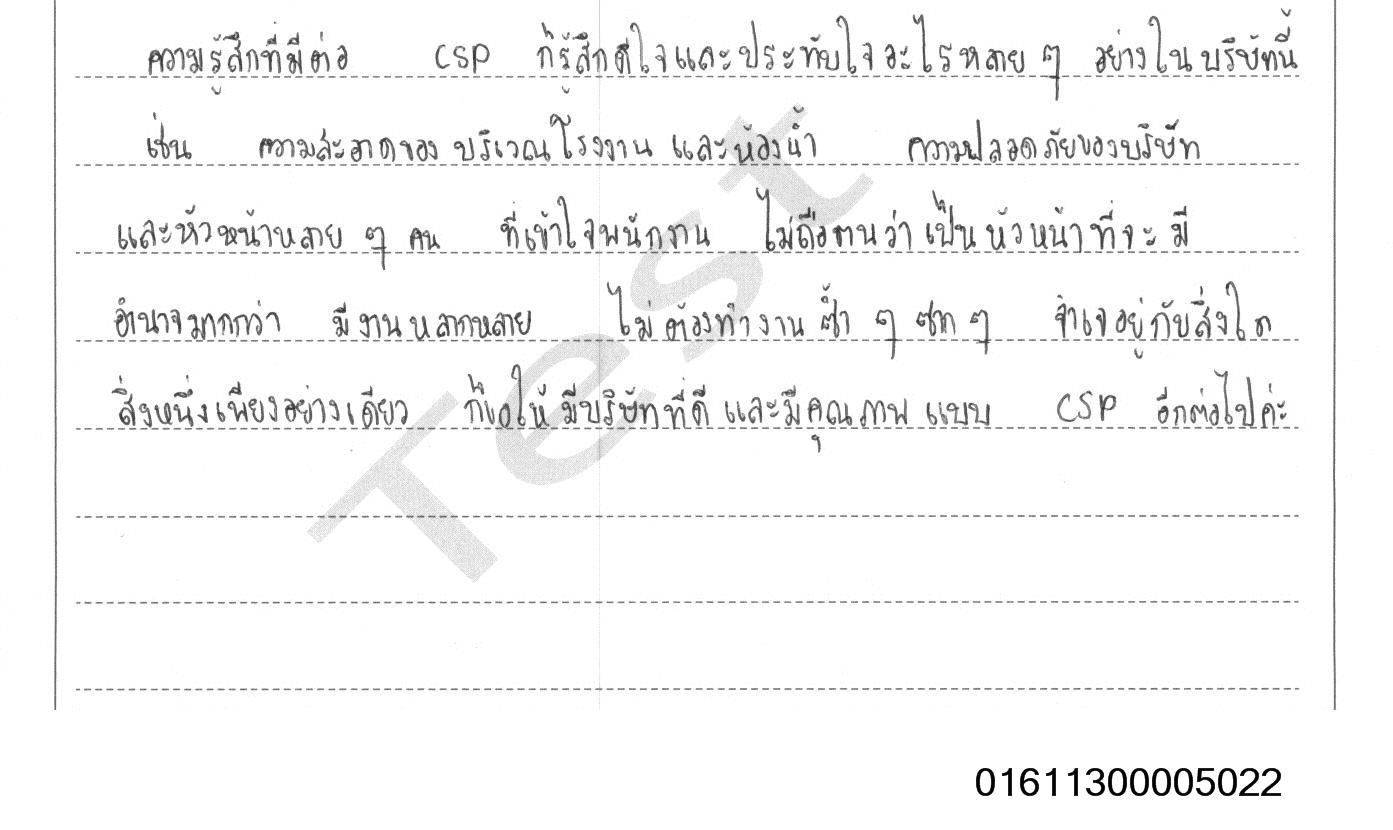 ความรู้สึกที่มีต่อ CSP ก็รู้สึกดีใจและประทับใจอะไรหลาย ๆ อย่างในบริษัทนี้
เช่น ความสะอาดของบริเวณโรงงานและห้องน้ำ ความปลอดภัยของบริษัท
และหัวหน้าหลาย ๆ คน ที่เข้าใจพนักงาน ไม่ถือตนว่าเป็นหัวหน้าที่จะมี
อำนาจมากกว่า มีงานหลากหลาย ไม่ต้องทำงานซ้ำ ๆ ซาก ๆ จำเจอยู่กับสิ่งใด
สิ่งหนึ่งเพียงอย่างเดียว ก็ขอให้มีบริษัทที่ดีและมีคุณภาพแบบ CSP อีกต่อไปค่ะ
Test
01611300005022